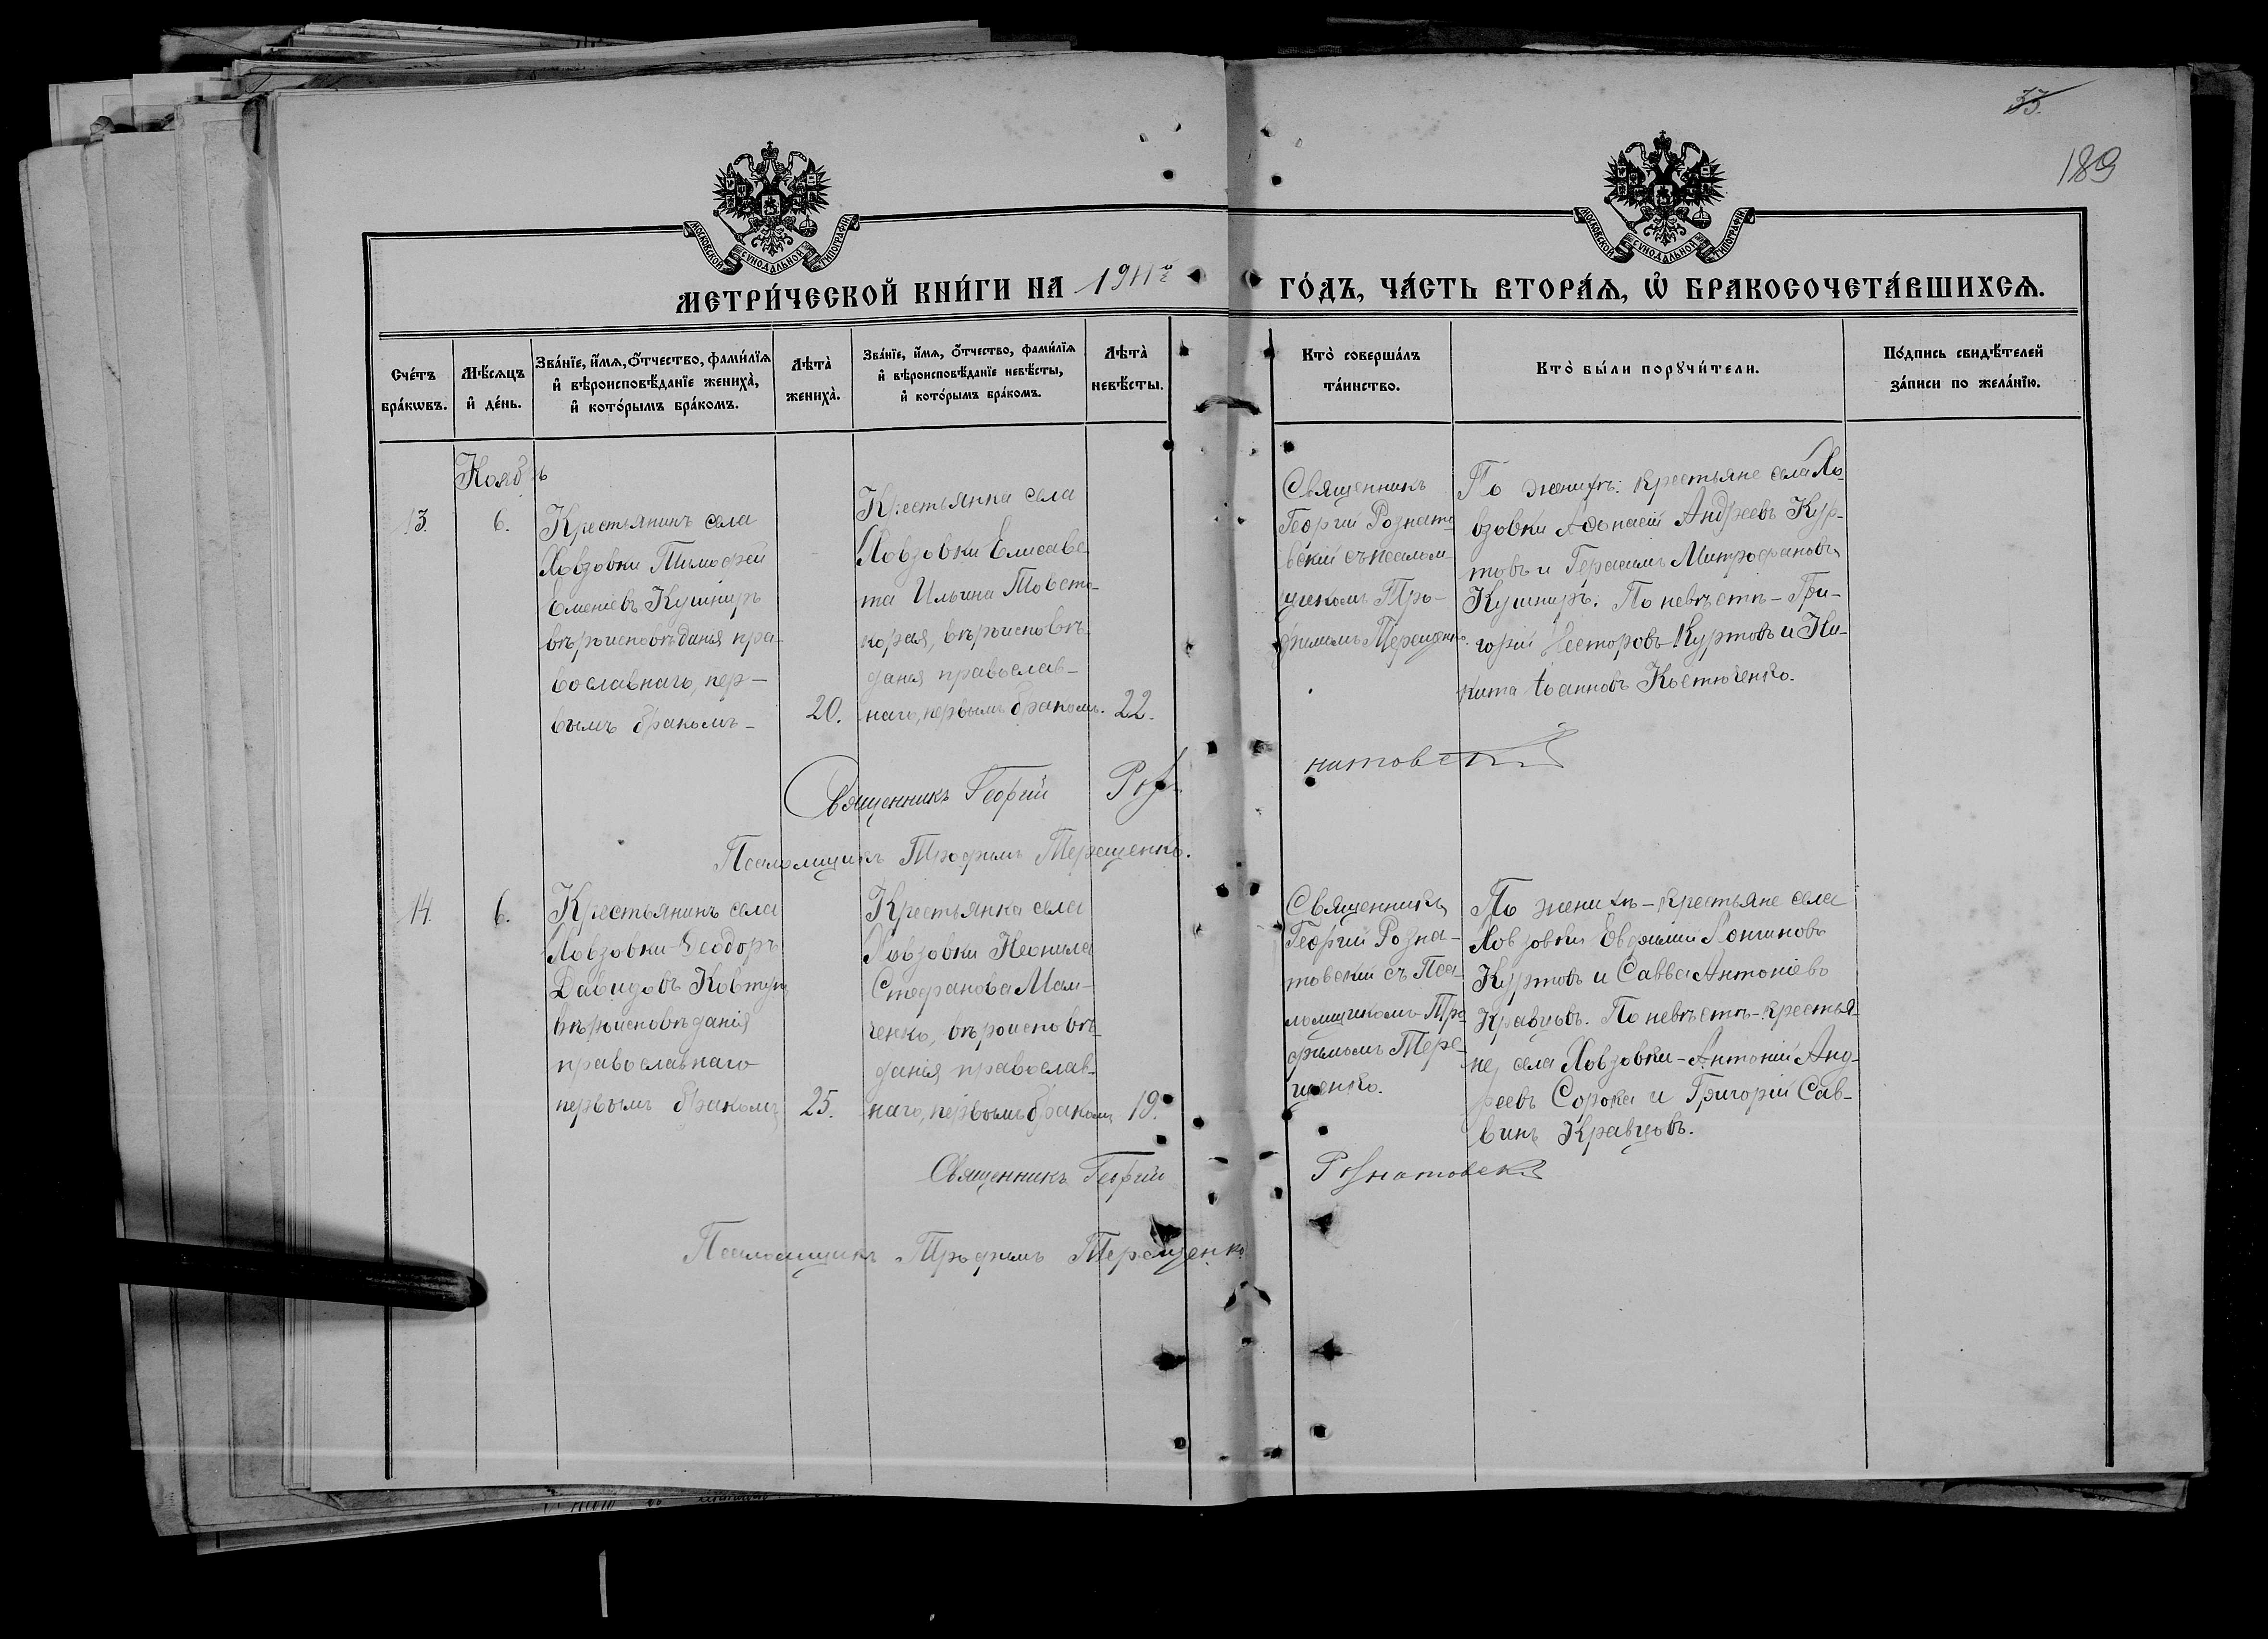 33.
189
МОСКОВСКОЙ СУНОДАЛЬНОЙ ТИПОГРАФІИ
МОСКОВСКОЙ СУНОДАЛЬНОЙ ТИПОГРАФІИ
МЕТРИ́ЧЕСКОЙ КНИ́ГИ НА 1911й ГО́ДЪ, ЧА́СТЬ ВТОРА́Ѧ, Ѽ БРАКОСОЧЕТА́ВШИХСѦ.
Сче́тъ бра́кѡвъ.
Мѣ́сѧцъ и҆ де́нь.
Зва́нїе, и҆́мѧ, ѻ҆́тчество, фами́лїѧ и҆ вѣроисповѣ́данїе жениха̀, и҆ кото́рымъ бра́комъ.
Лѣта̀ жениха̀.
Зва́нїе, и҆́мѧ, ѻ҆́тчество, фами́лїѧ и҆ вѣроисповѣ́данїе невѣ́сты, и҆ кото́рымъ бра́комъ.
Лѣта̀ невѣ́сты.
Кто̀ соверша́лъ та́инство.
Кто̀ бы́ли порꙋчи́тели.
По́дпись свидѣ́телей за́писи по жела́нїю.
Ноябрь
13.
6.
Крестьянинъ села
Ховзовки Тимофей
Еменіевъ Кушниръ
вѣроисповѣданія пра-
вославнаго, пер-
вымъ бракомъ-
20.
Крестьянка села
Ховзовки Елисаве
та Ильина Товсто-
корая, вѣроисповѣ-
данія православ-
наго, первымъ бракомъ.
22.
Священникъ
Георгій Рознато
вскій съ псалом
щикомъ Тро-
фимомъ Терещенко.
По женихѣ: крестьяне села Хо
взовки Аѳонасій Андреевъ Кур-
товъ и Герасимъ Митрофановъ
Кушниръ. По невѣстѣ - Гри-
горій Несторовъ Куртовъ и Ни-
кита Іоанновъ Костюченко.
Священникъ Георгій Роз-
натовскій
Псаломщикъ Трофимъ Терещенко.
14.
6.
Крестьянинъ села
Ховзовки Ѳеодоръ
Давидовъ Ковтунъ
вѣроисповѣданія
православнаго
первымъ бракомъ
25.
Крестьянка села
Ховзовки Неонила
Стефанова Мам-
ченко, вѣроисповѣ-
данія православ-
наго, первымъ бракомъ
19.
Священникъ
Георгій Розна-
товскій съ Пса-
ломщикомъ Тро-
фимомъ Тере-
щенко.
По женихѣ - крестьяне села
Ховзовки Евфимій Лонгиновъ
Куртовъ и Савва Антоніевъ
Кравцовъ. По невѣстѣ - крестья-
не, села Ховзовки - Антоній Анд-
реевъ Сорока и Григорій Сав-
винъ Кравцовъ.
Священникъ Георгій Рознатовскій
Псаломщикъ Трофимъ Терещенко